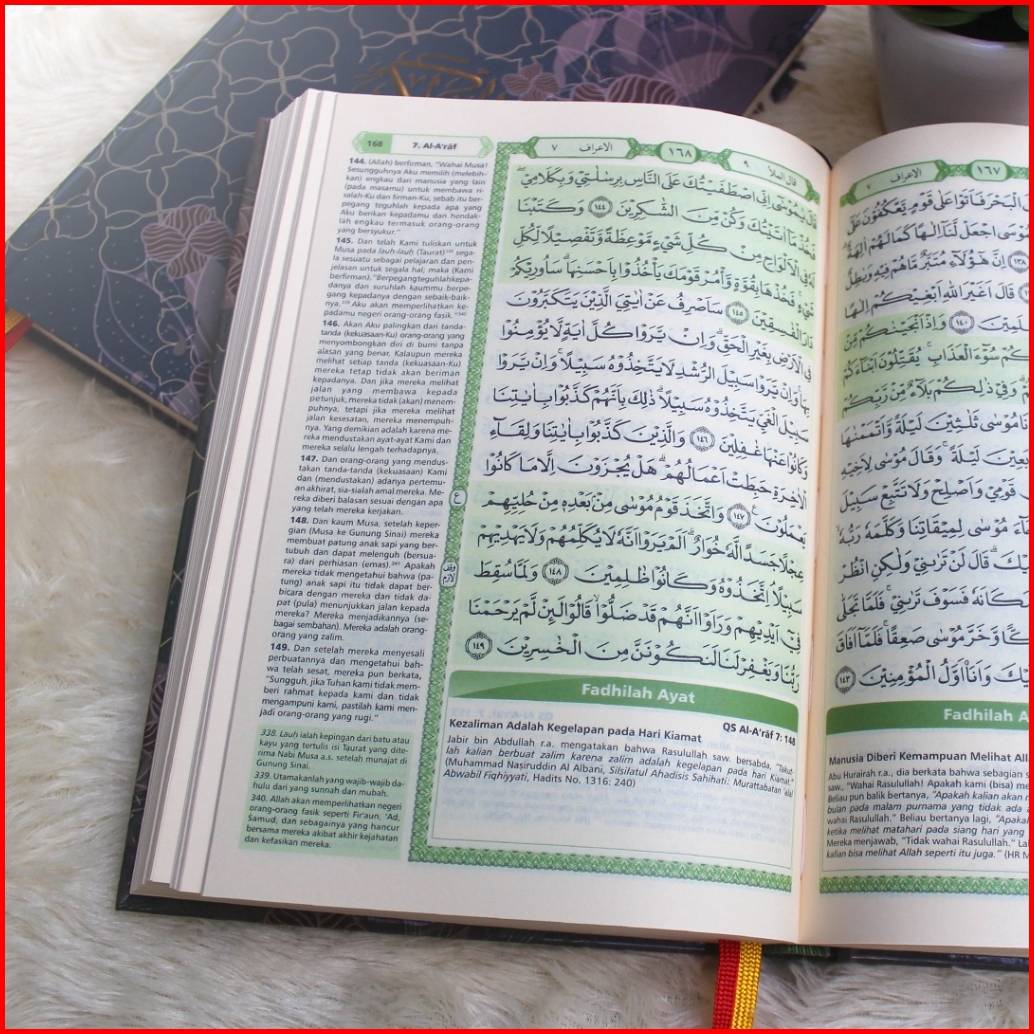 168
7. Al-A'rāf
144. (Allah) berfirman, "Wahai Musa!
Sesungguhnya Aku memilih (melebih-
kan) engkau dari manusia yang lain
(pada masamu) untuk membawa ri-
salah-Ku dan firman-Ku, sebab itu ber-
pegang teguhlah kepada apa yang
Aku berikan kepadamu dan hendak-
lah engkau termasuk orang-orang
yang bersyukur."
145. Dan telah Kami tuliskan untuk
Musa pada lauh-lauh (Taurat)³³⁸ sega-
la sesuatu sebagai pelajaran dan pen-
jelasan untuk segala hal; maka (Kami
berfirman), "Berpegangteguhlah kepa-
danya dan suruhlah kaummu berpe-
gang kepadanya dengan sebaik-baik-
nya,³³⁹ Aku akan memperlihatkan ke-
padamu negeri orang-orang fasik."³⁴⁰
146. Akan Aku palingkan dari tanda-
tanda (kekuasaan-Ku) orang-orang yang
menyombongkan diri di bumi tanpa
alasan yang benar. Kalaupun mereka
melihat setiap tanda (kekuasaan-Ku)
mereka tetap tidak akan beriman
kepadanya. Dan jika mereka melihat
jalan yang membawa kepada
petunjuk, mereka tidak (akan) menem-
puhnya, tetapi jika mereka melihat
jalan kesesatan, mereka menempuh-
nya. Yang demikian adalah karena me-
reka mendustakan ayat-ayat Kami dan
mereka selalu lengah terhadapnya.
147. Dan orang-orang yang mendus-
takan tanda-tanda (kekuasaan) Kami
dan (mendustakan) adanya pertemu-
an akhirat, sia-sialah amal mereka. Me-
reka diberi balasan sesuai dengan apa
yang telah mereka kerjakan.
148. Dan kaum Musa, setelah keper-
gian (Musa ke Gunung Sinai) mereka
membuat patung anak sapi yang ber-
tubuh dan dapat melenguh (bersua-
ra) dari perhiasan (emas).³⁴¹ Apakah
mereka tidak mengetahui bahwa (pa-
tung) anak sapi itu tidak dapat ber-
bicara dengan mereka dan tidak da-
pat (pula) menunjukkan jalan kepada
mereka? Mereka menjadikannya (se-
bagai sembahan). Mereka adalah orang-
orang yang zalim.
149. Dan setelah mereka menyesali
perbuatannya dan mengetahui bah-
wa telah sesat, mereka pun berkata,
"Sungguh, jika Tuhan kami tidak mem-
beri rahmat kepada kami dan tidak
mengampuni kami, pastilah kami men-
jadi orang-orang yang rugi."
338. Lauh ialah kepingan dari batu atau
kayu yang tertulis isi Taurat yang dite-
rima Nabi Musa a.s. setelah munajat di
Gunung Sinai.
339. Utamakanlah yang wajib-wajib da-
hulu dari yang sunnah dan mubah.
340. Allah akan memperlihatkan negeri
orang-orang fasik seperti Fir'aun, 'Ad,
Samud, dan sebagainya yang hancur
bersama mereka akibat akhir kejahatan
dan kefasikan mereka.
قال الملأ ٩
١٦٨
الاعراف ٧
قَالَ يٰمُوْسٰٓى اِنِّى اصْطَفَيْتُكَ عَلَى النَّاسِ بِرِسٰلٰتِيْ وَبِكَلَامِيْ
فَخُذْ مَآ اٰتَيْتُكَ وَكُنْ مِّنَ الشّٰكِرِيْنَ ١٤٤ وَكَتَبْنَا
لَهٗ فِى الْاَلْوَاحِ مِنْ كُلِّ شَيْءٍ مَّوْعِظَةً وَّتَفْصِيْلًا لِّكُلِّ
شَيْءٍ فَخُذْهَا بِقُوَّةٍ وَّأْمُرْ قَوْمَكَ يَأْخُذُوْا بِاَحْسَنِهَا سَاُورِيْكُمْ
دَارَ الْفٰسِقِيْنَ ١٤٥ سَاَصْرِفُ عَنْ اٰيٰتِيَ الَّذِيْنَ يَتَكَبَّرُوْنَ
فِى الْاَرْضِ بِغَيْرِ الْحَقِّ وَاِنْ يَّرَوْا كُلَّ اٰيَةٍ لَّا يُؤْمِنُوْا
بِهَا وَاِنْ يَّرَوْا سَبِيْلَ الرُّشْدِ لَا يَتَّخِذُوْهُ سَبِيْلًا وَاِنْ يَّرَوْا
سَبِيْلَ الْغَيِّ يَتَّخِذُوْهُ سَبِيْلًا ذٰلِكَ بِاَنَّهُمْ كَذَّبُوْا بِاٰيٰتِنَا
وَكَانُوْا عَنْهَا غٰفِلِيْنَ ١٤٦ وَالَّذِيْنَ كَذَّبُوْا بِاٰيٰتِنَا وَلِقَاۤءِ
الْاٰخِرَةِ حَبِطَتْ اَعْمَالُهُمْ هَلْ يُجْزَوْنَ اِلَّا مَا كَانُوْا
يَعْمَلُوْنَ ١٤٧ وَاتَّخَذَ قَوْمُ مُوْسٰى مِنْۢ بَعْدِهٖ مِنْ حُلِيِّهِمْ
عِجْلًا جَسَدًا لَّهٗ خُوَارٌ اَلَمْ يَرَوْا اَنَّهٗ لَا يُكَلِّمُهُمْ وَلَا يَهْدِيْهِمْ
سَبِيْلًا اِتَّخَذُوْهُ وَكَانُوْا ظٰلِمِيْنَ ١٤٨ وَلَمَّا سُقِطَ
فِيْٓ اَيْدِيْهِمْ وَرَاَوْا اَنَّهُمْ قَدْ ضَلُّوْا قَالُوْا لَىِٕنْ لَّمْ يَرْحَمْنَا
رَبُّنَا وَيَغْفِرْ لَنَا لَنَكُوْنَنَّ مِنَ الْخٰسِرِيْنَ ١٤٩
ع
وقف لازم
Fadhilah Ayat
Kezaliman Adalah Kegelapan pada Hari Kiamat QS Al-A'rāf 7: 148
Jabir bin Abdullah r.a. mengatakan bahwa Rasulullah saw. bersabda, "Takut-
lah kalian berbuat zalim karena zalim adalah kegelapan pada hari Kiamat."
(Muhammad Naṣiruddin Al Albani, Silsilatul Ahadisis Sahihati: Murattabatan 'alal
Abwabil Fiqhiyyati, Hadits No. 1316: 240)
١٦٧
الاعراف ٧
الْبَحْرَ فَاَتَوْا عَلٰى قَوْمٍ يَّعْكُفُوْنَ عَلٰٓى
اجْعَلْ لَّنَآ اِلٰهًا كَمَا لَهُمْ اٰلِهَةٌ
١٣٨ اِنَّ هٰٓؤُلَاۤءِ مُتَبَّرٌ مَّا هُمْ فِيْهِ وَبٰطِلٌ
قَالَ اَغَيْرَ اللّٰهِ اَبْغِيْكُمْ اِلٰهًا
١٤٠ وَاِذْ اَنْجَيْنٰكُمْ مِّنْ
سُوْۤءَ الْعَذَابِ يُقَتِّلُوْنَ اَبْنَاۤءَكُمْ
وَفِيْ ذٰلِكُمْ بَلَاۤءٌ مِّنْ رَّبِّكُمْ
مُوْسٰى ثَلٰثِيْنَ لَيْلَةً وَّاَتْمَمْنٰهَا
لَيْلَةً وَقَالَ مُوْسٰى لِاَخِيْهِ
قَوْمِيْ وَاَصْلِحْ وَلَا تَتَّبِعْ سَبِيْلَ
مُوْسٰى لِمِيْقَاتِنَا وَكَلَّمَهٗ رَبُّهٗ
قَالَ لَنْ تَرٰىنِيْ وَلٰكِنِ انْظُرْ
فَسَوْفَ تَرٰىنِيْ فَلَمَّا تَجَلّٰى
وَّخَرَّ مُوْسٰى صَعِقًا فَلَمَّآ اَفَاقَ
وَاَنَا۠ اَوَّلُ الْمُؤْمِنِيْنَ ١٤٣
Fadhilah A
Manusia Diberi Kemampuan Melihat All
Abu Hurairah r.a., dia berkata bahwa sebagian s
saw., "Wahai Rasulullah! Apakah kami (bisa) me
Beliau pun balik bertanya, "Apakah kalian akan r
bulan pada malam purnama yang tidak ada a
wahai Rasulullah." Beliau bertanya lagi, "Apakah
ketika melihat matahari pada siang hari yang
Mereka menjawab, "Tidak wahai Rasulullah." La
kalian bisa melihat Allah seperti itu juga." (HR M